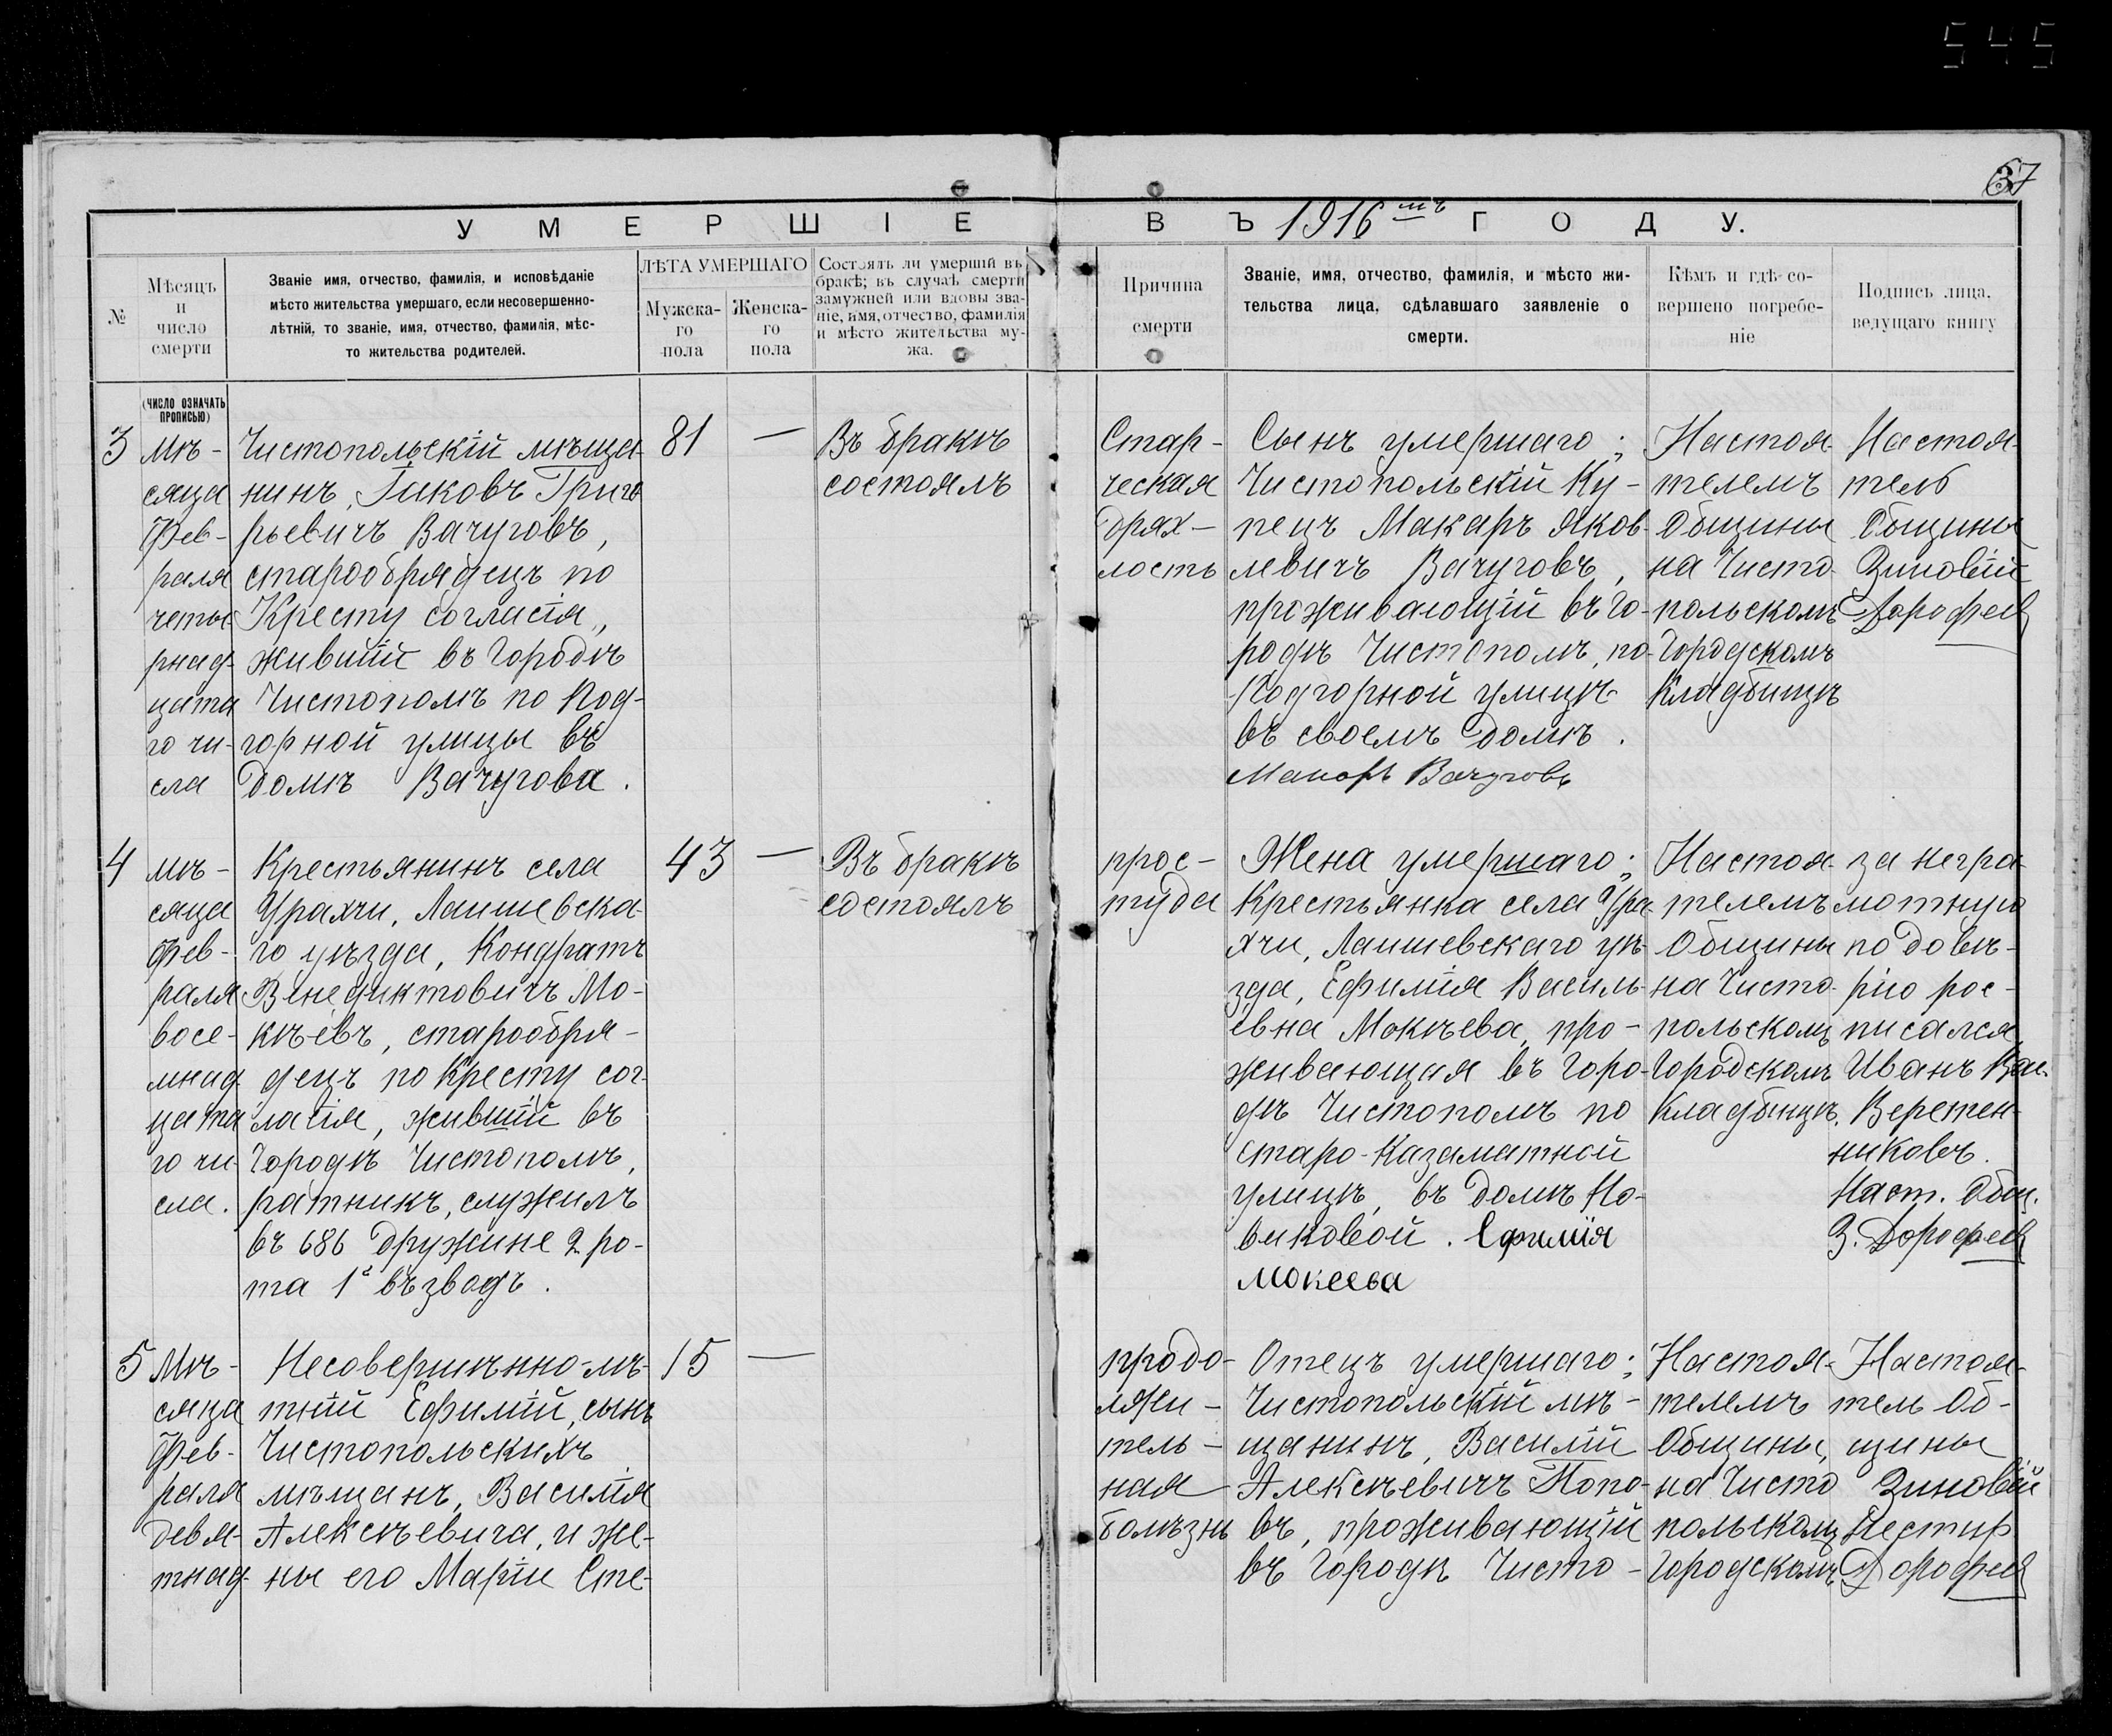 545
67
УМЕРШІЕ ВЪ 1916мъ ГОДУ.
№
Мѣсяцъ
и
число
смерти
Званіе имя, отчество, фамилія, и исповѣданіе
мѣсто жительства умершаго, если несовершенно-
лѣтній, то званіе, имя, отчество, фамилія, мѣс-
то жительства родителей.
ЛѢТА УМЕРШАГО
Мужска-
го
пола
Женска-
го
пола
Состоялъ ли умершій въ
бракѣ; въ случаѣ смерти
замужней или вдовы зва-
ніе, имя, отчество, фамилія
и мѣсто жительства му-
жа.
Причина
смерти
Званіе, имя, отчество, фамилія, и мѣсто жи-
тельства лица, сдѣлавшаго заявленіе о
смерти.
Кѣмъ и гдѣ со-
вершено погребе-
ніе
Подпись лица,
ведущаго книгу
(ЧИСЛО ОЗНАЧАТЬ
ПРОПИСЬЮ)
3
Мѣ-
сяца
Фев-
раля
четы
рнад-
цата
го чи-
сла
Чистопольскій мѣща-
нинъ, Іаковъ Григо
рьевичъ Вачуговъ,
старообрядецъ по
Кресту согласія,
жившій въ Городѣ
Чистополѣ по Под-
горной улицы въ
домѣ Вачугова.
81
—
Въ бракѣ
состоялъ
Стар-
ческая
дрях-
лость
Сынъ умершаго;
Чистопольскій Ку-
пецъ Макаръ Яков-
левичъ Вачуговъ,
проживающій въ Го-
родѣ Чистополѣ, по-
Подгорной улицѣ
въ своемъ домѣ.
Макаръ Вачуговъ
Настоя-
телемъ
Общины
на Чисто-
польскомъ
Городскомъ
Кладбищѣ
Настоя-
тель
Общины
Зиновій
Дорофеев
4
мѣ-
сяца
Фев-
раля
восе-
мнад-
цата
го чи-
сла.
Крестьянинъ села
Урахчи, Лаишевска-
го уѣзда, Кондратъ
Венедиктовичъ Мо-
кѣевъ, старообря-
децъ по Кресту сог-
ласія, жившій въ
Городѣ Чистополѣ,
ратникъ, служилъ
въ 686 дружине 2 ро-
та 1й възводъ.
43
—
Въ бракѣ
состоялъ
прос-
туда
Жена умершаго;
Крестьянка села Ура
хчи, Лаишевскаго уѣ-
зда, Ефимія Василь-
евна Мокѣева, про-
живающая въ Горо-
дѣ Чистополѣ по
старо-Казаматной
улицѣ, въ домѣ Но-
виковой. Ефимія
Мокеева
Настоя-
телемъ
Общины
на Чисто-
польскомъ
Городскомъ
Кладбищѣ.
за негра-
мотную
по довѣ-
рію рос-
писался
Иванъ Вас.
Веретен-
никовъ.
Наст. Общ.
З. Дорофеев
5
Мѣ-
сяца
Фев-
раля
девя-
тнад-
Несовершѣнно-лѣ-
тній Ефимій, сынъ
Чистопольскихъ
мѣщанъ, Василія
Алексѣевича, и же-
ны его Маріи Сте-
15
—
продо-
лжи-
тель-
ная
болѣзнь
Отецъ умершаго;
Чистопольскій мѣ-
щанинъ, Василій
Алексѣевичъ Попо-
въ, проживающій
въ Городѣ Чисто-
Настоя-
телемъ
Общины,
на Чисто
польскомъ
Городскомъ
Настоя-
тель Об-
щины
Зиновій
Нестир
Дорофеев